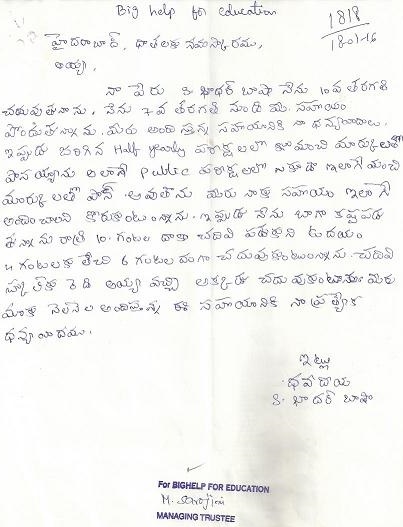 Big help for education
1818
18-01-16
హైదరాబాద్, దాతలకు నమస్కారము,
అయ్యా,
నా పేరు S. ఖాదర్ బాషా నేను 10వ తరగతి
చదువుతున్నాను. నేను 7వ తరగతి నుండి మీ సహాయం
పొందుతున్నాను. మీరు అందిస్తున్న సహాయానికి నా ధన్యవాదాలు.
ఇప్పుడు జరిగిన Half yearly పరీక్షలలో మంచి మార్కులతో
పాసయ్యాను అలాగే Public పరీక్షలలో కూడా ఇలాగే మంచి
మార్కులతో పాస్ అవుతాను మీరు నాకు సహాయం ఇలాగే
అందించాలని కోరుకుంటున్నాను. ఇప్పుడు నేను బాగా కష్టపడు
తున్నాను రాత్రి 10 గంటల దాకా చదివి పడుకుని ఉదయం
4 గంటలకు లేచి 6 గంటల వరకు చదువుకుంటున్నాను. చదివి
స్కూల్‌కు రెడీ అయ్యి వచ్చి అక్కడ చదువుకుంటాను మీరు
మాకు నెలనెల అందిస్తున్న ఈ సహాయానికి నా ప్రత్యేక
ధన్యవాదములు.
ఇట్లు
S. ఖాదర్ బాషా
For BIGHELP FOR EDUCATION
M. Sarojini
MANAGING TRUSTEE